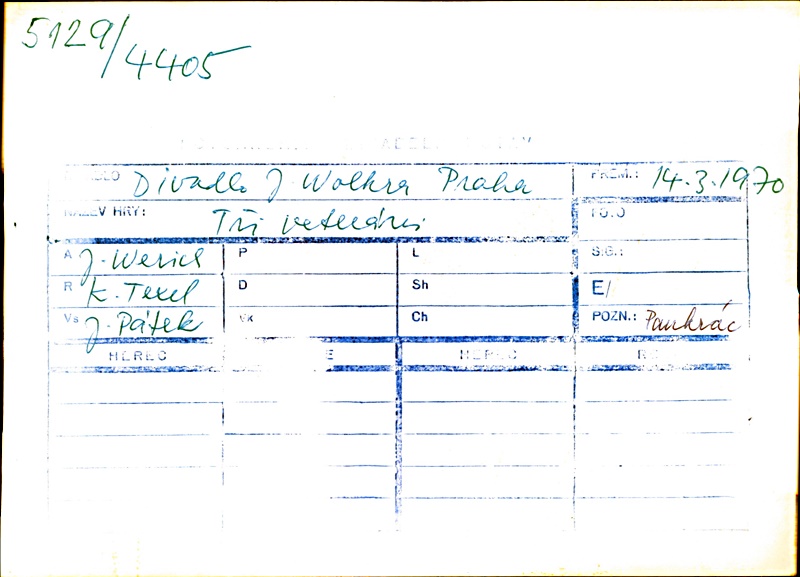 5129/4405
Divadlo J. Wolkra Praha PREM.: 14.3.1970
NÁZEV HRY: Tři veteráni
A J. Werich P L SIG.:
R K. Texel D Sh E/
Vs J. Pátek Vk Ch POZN.: Pankrác
HEREC HEREC